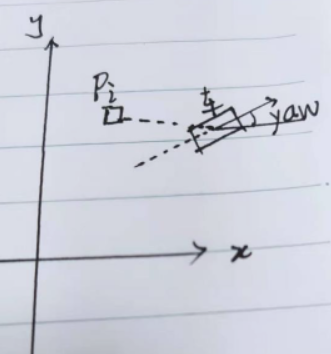 y
Pi
t
yaw
x